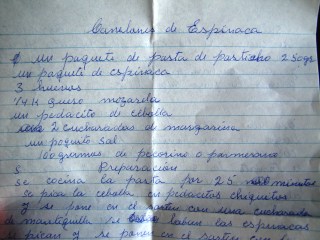 Canelones de Espinaca
un paquete de pasta de pasticho 250gr
un paquete de espinaca
3 huevos
1/4 K queso mozarela
un pedacito de cebolla
2 cucharadas de margarina
un poquito sal
100 gramos de pecorino o parmesano
Preparación
se cocina la pasta por 25 minutos
se pica la cebolla en pedacitos chiquitos
Y se pone en el sarten con una cucharada
de mantequilla se laban las espinacas
se pican y se ponen en el sarten con